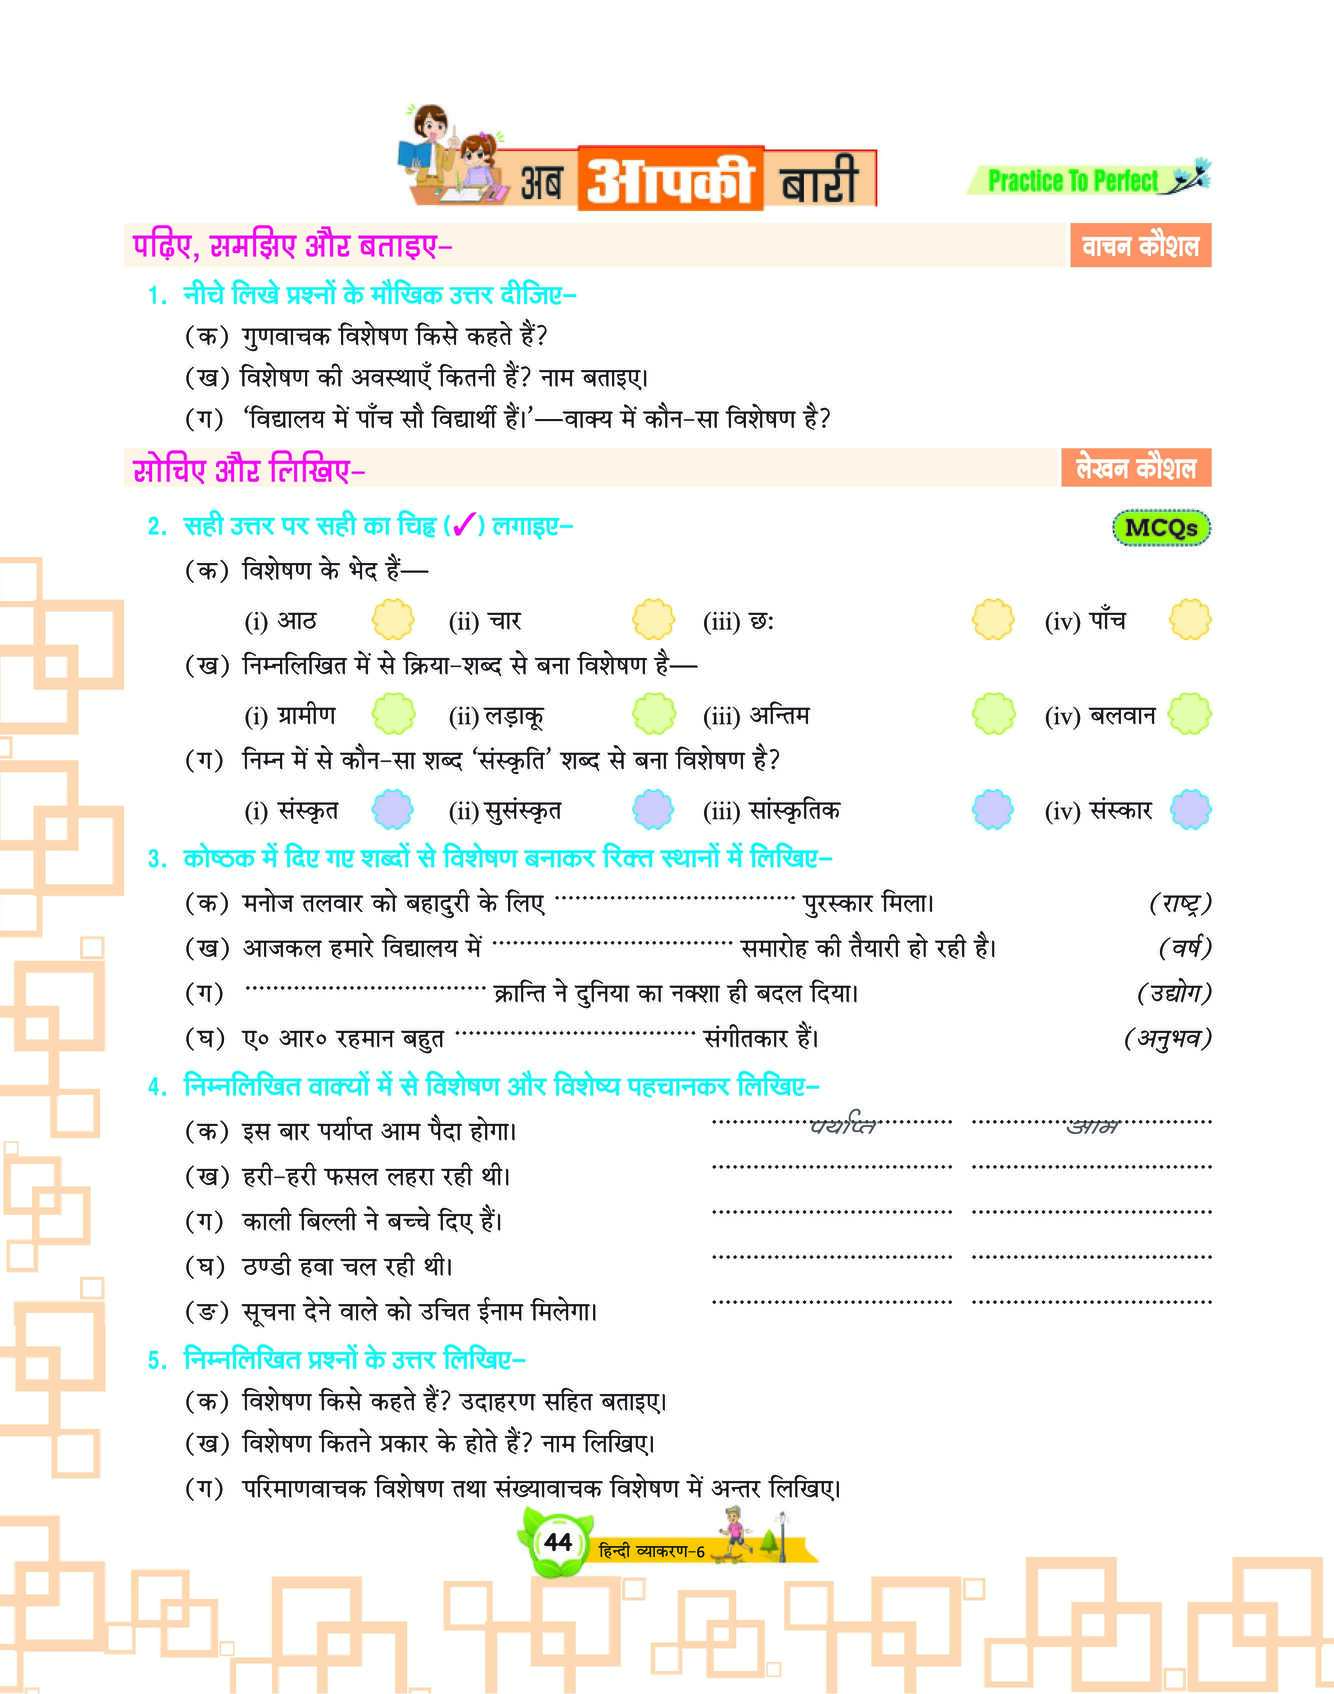 अब आपकी बारी
Practice To Perfect
पढ़िए, समझिए और बताइए–
वाचन कौशल
1. नीचे लिखे प्रश्नों के मौखिक उत्तर दीजिए–
(क) गुणवाचक विशेषण किसे कहते हैं?
(ख) विशेषण की अवस्थाएँ कितनी हैं? नाम बताइए।
(ग) ‘विद्यालय में पाँच सौ विद्यार्थी हैं।’—वाक्य में कौन-सा विशेषण है?
सोचिए और लिखिए–
लेखन कौशल
2. सही उत्तर पर सही का चिह्न (✓) लगाइए–
MCQs
(क) विशेषण के भेद हैं—
(i) आठ (ii) चार (iii) छ: (iv) पाँच
(ख) निम्नलिखित में से क्रिया-शब्द से बना विशेषण है—
(i) ग्रामीण (ii) लड़ाकू (iii) अन्तिम (iv) बलवान
(ग) निम्न में से कौन-सा शब्द ‘संस्कृति’ शब्द से बना विशेषण है?
(i) संस्कृत (ii) सुसंस्कृत (iii) सांस्कृतिक (iv) संस्कार
3. कोष्ठक में दिए गए शब्दों से विशेषण बनाकर रिक्त स्थानों में लिखिए–
(क) मनोज तलवार को बहादुरी के लिए ................................... पुरस्कार मिला। (राष्ट्र)
(ख) आजकल हमारे विद्यालय में ................................... समारोह की तैयारी हो रही है। (वर्ष)
(ग) ................................... क्रान्ति ने दुनिया का नक्शा ही बदल दिया। (उद्योग)
(घ) ए० आर० रहमान बहुत ................................... संगीतकार हैं। (अनुभव)
4. निम्नलिखित वाक्यों में से विशेषण और विशेष्य पहचानकर लिखिए–
(क) इस बार पर्याप्त आम पैदा होगा। पर्याप्त आम
(ख) हरी-हरी फसल लहरा रही थी। ................................... ...................................
(ग) काली बिल्ली ने बच्चे दिए हैं। ................................... ...................................
(घ) ठण्डी हवा चल रही थी। ................................... ...................................
(ङ) सूचना देने वाले को उचित ईनाम मिलेगा। ................................... ...................................
5. निम्नलिखित प्रश्नों के उत्तर लिखिए–
(क) विशेषण किसे कहते हैं? उदाहरण सहित बताइए।
(ख) विशेषण कितने प्रकार के होते हैं? नाम लिखिए।
(ग) परिमाणवाचक विशेषण तथा संख्यावाचक विशेषण में अन्तर लिखिए।
44 हिन्दी व्याकरण-6